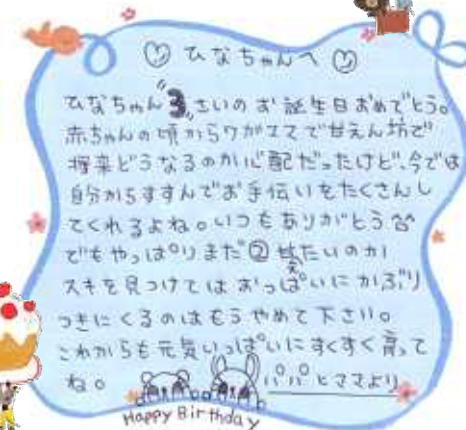 ♡ ひなちゃんへ ♡
ひなちゃん"3"さいのお誕生日おめでとう。
赤ちゃんの頃からワガママで甘えん坊で
将来どうなるのか心配だったけど、今では
自分からすすんでお手伝いをたくさんし
てくれるよね。いつもありがとう^^
でもやっぱりまだ②甘えたいのか
スキを見つけてはおっぱいにかぶり
つきにくるのはもうやめて下さい。
これからも元気いっぱいにすくすく育って
ね。
パパとママより
Happy Birthday